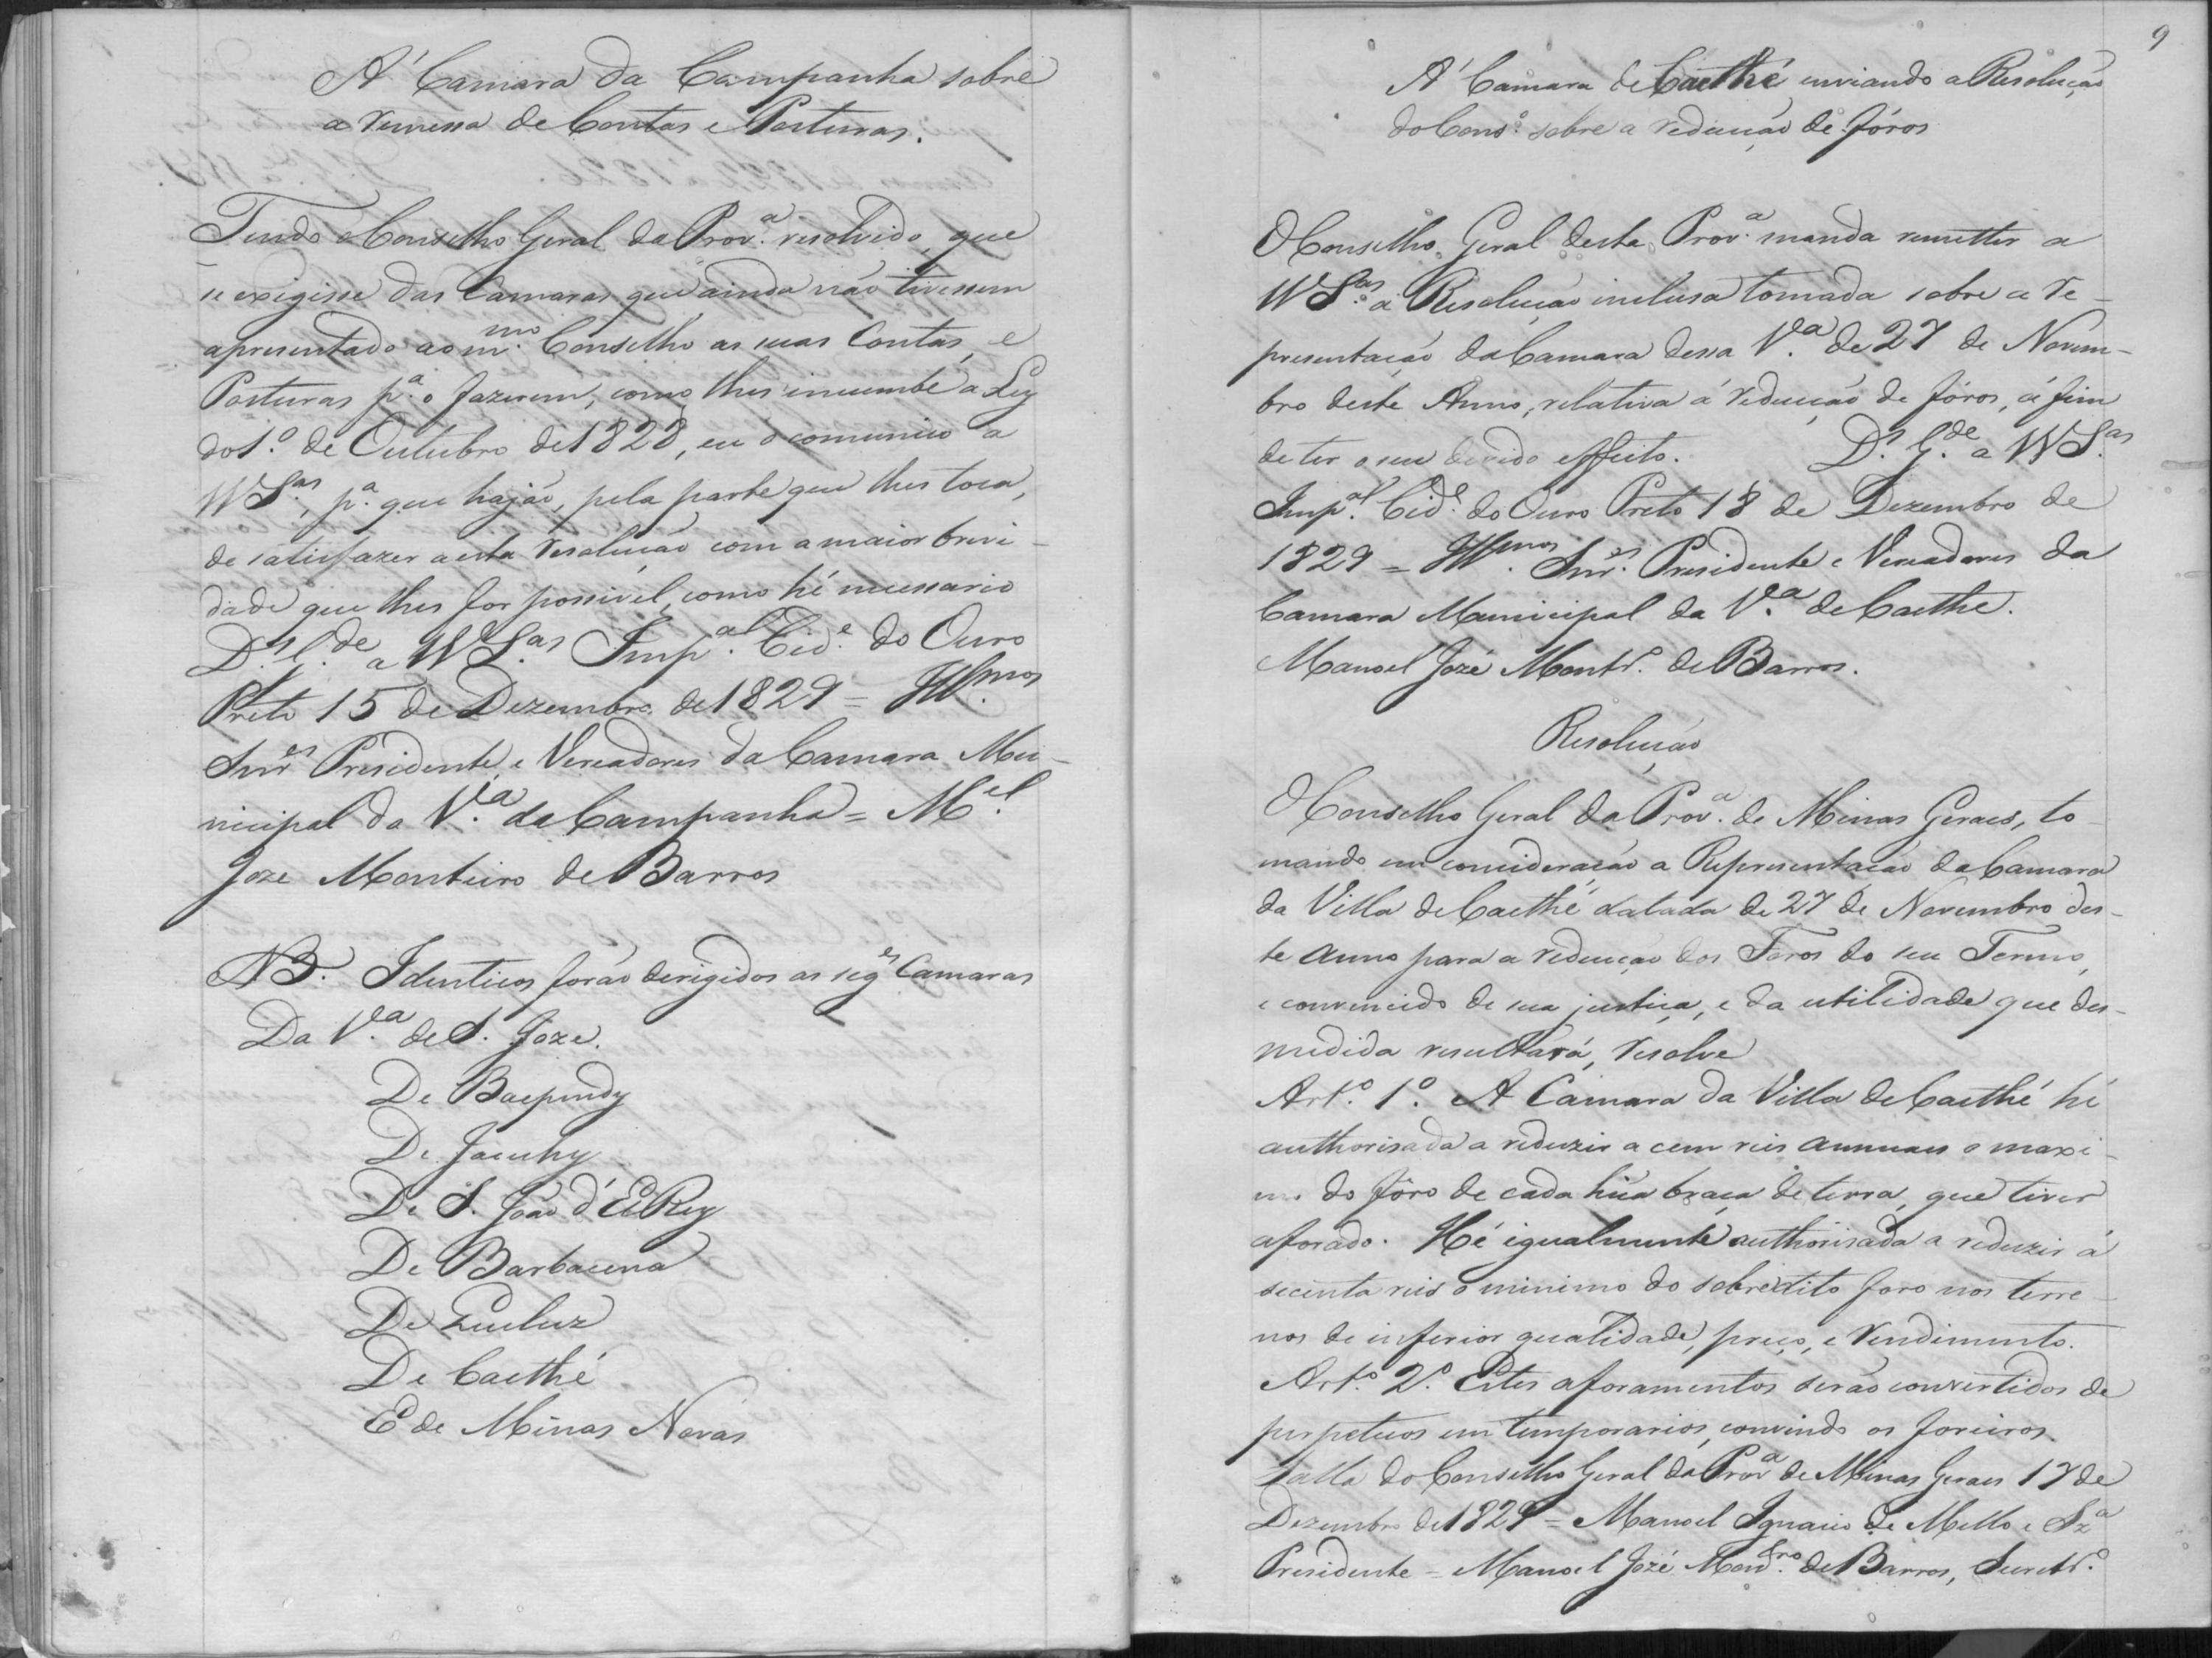 A' Camara da Campanha sobre
a remessa de Contas e Posturas.
Tendo o Conselho Geral da Prov.ª resolvido, que
se exigisse das Camaras que ainda não tivessem
apresentado ao m.mo Conselho as suas Contas, e
Posturas p.ª o fazerem, como lhes incumbe a Ley
do 1.º de Outubro de 1828, eu o comunico a
VV S.as, p.ª que hajão, pela parte que lhes toca,
de satisfazer a esta resolução com a maior brevi-
dade que lhes for possivel, como hé necessario
D.s G.de a VV S.as Imp.al Cid.e do Ouro
Preto 15 de Dezembro de 1829 = Ill.mos
Snr.es Presidente, e Vereadores da Camara Mu-
nicipal da V.ª da Campanha = M.el
Joze Monteiro de Barros
NB. Identicos forão derigidos as seg.es Camaras
Da V.ª de S. Joze.
De Baependy
De Jacuhy
De S. João d'El Rey
De Barbacena
De Queluz
De Caethé
E de Minas Novas
9
A' Camara de Caethé enviando a Resolução
do Cons.º sobre a redução de fóros
O Conselho Geral desta Prov.ª manda remetter a
VV S.as a Resolução inclusa tomada sobre a re-
presentação da Camara dessa V.ª de 27 de Novem-
bro deste Anno, relativa á redução de fóros, á fim
de ter o seu devido effeito. D.s G.de a VV S.as
Imp.al Cid.e do Ouro Preto 18 de Dezembro de
1829 = Ill.mos Snr.es Presidente e Vereadores da
Camara Municipal da V.ª de Caethe.
Manoel Jozé Montr.º de Barros.
Resolução
O Conselho Geral da Prov.ª de Minas Geraes, to-
mando em consideração a Representação da Camara
da Villa de Caethé datada de 27 de Novembro des-
te anno para a redução dos Foros do seu Termo,
e convencido de sua justiça, e da utilidade que des-
medida resultará, resolve
Art.º 1.º A Camara da Villa de Caethé hé
authorisada a reduzir a cem reis annuaes o maxi-
mo do fôro de cada hũa braça de terra, que tiver
aforado. Hé igualmente authorisada a reduzir á
secenta reis o minimo do sobredito foro nos terre-
nos de inferior qualidade, preço, e rendimento.
Art.º 2.º Estes aforamentos serão convertidos de
perpetuos em temporarios, convindo os foreiros.
Salla do Conselho Geral da Prov.ª de Minas Geraes 17 de
Dezembro de 1829 = Manoel Ignacio de Mello e Sz.ª
Presidente = Manoel Jozé Mont.ro de Barros, Secretr.º